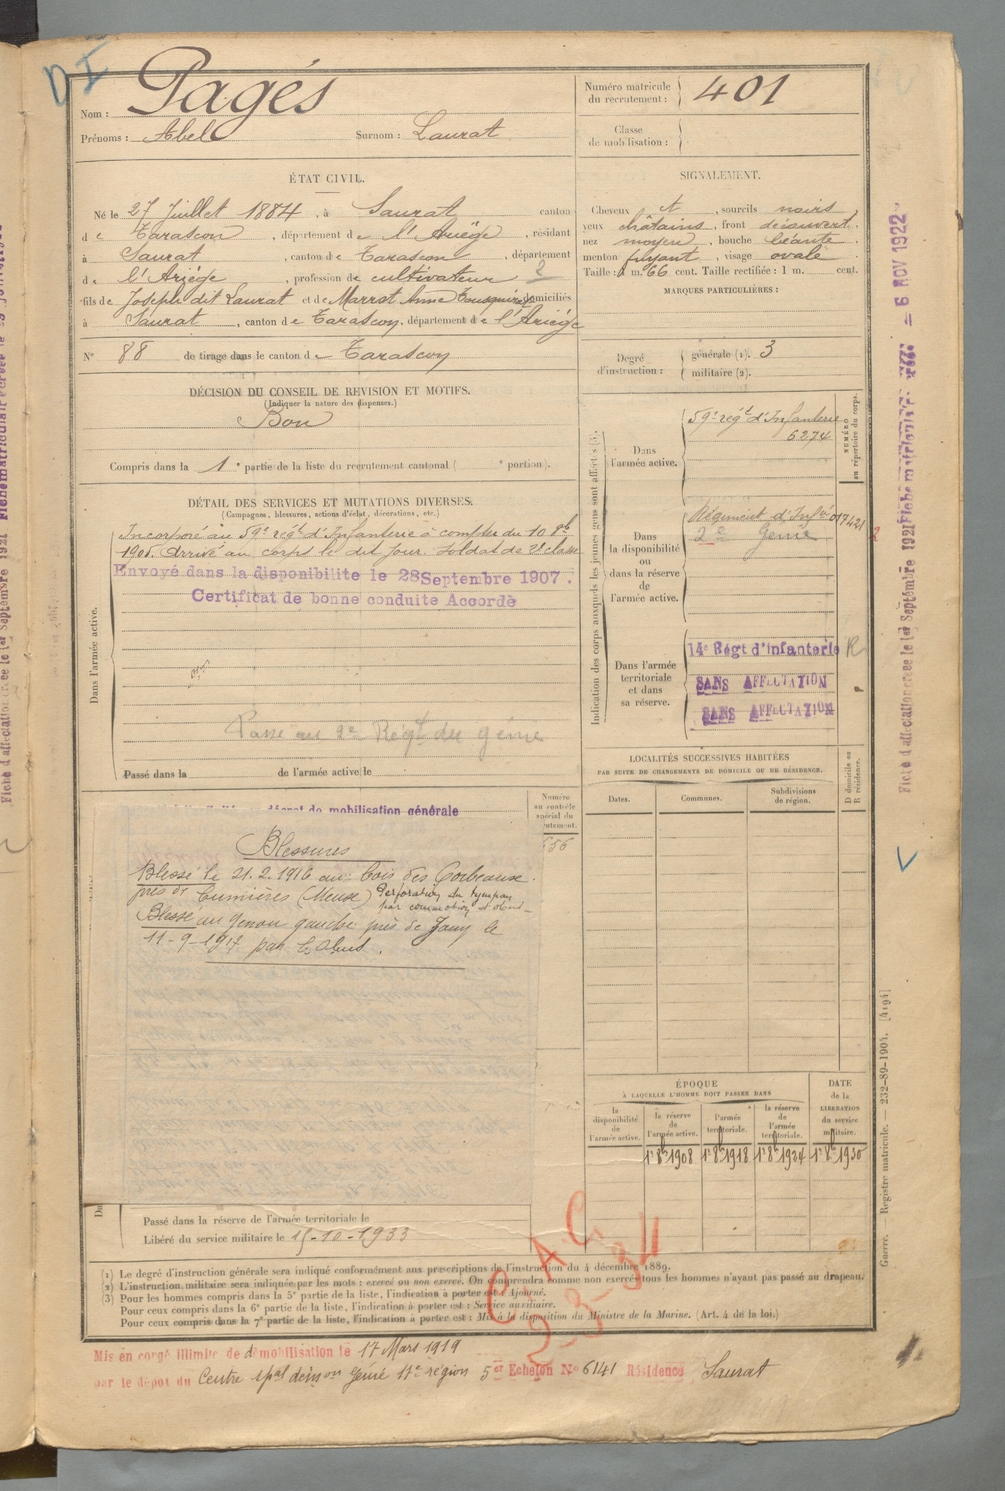 DI
Nom : Pagés
Prénoms : Abel Surnom : Laurat
Numéro matricule du recrutement : 401
Classe de mobilisation :
ÉTAT CIVIL.
Né le 27 Juillet 1884, à Saurat canton
de Tarascon, département de l'Ariège, résidant
à Saurat, canton de Tarascon, département
de l'Ariège, profession de cultivateur 2
fils de Joseph dit Laurat et de Marrot Anne domiciliés
à Saurat, canton de Tarascon, département de l'Ariège
N° 88 de tirage dans le canton de Tarascon
SIGNALEMENT.
Cheveux N, sourcils noirs
yeux châtains, front découvert,
nez moyen, bouche béante,
menton fuyant, visage ovale
Taille : 1 m. 66 cent. Taille rectifiée : 1 m. cent.
MARQUES PARTICULIÈRES :
Degré d'instruction : générale (1). 3
militaire (2).
DÉCISION DU CONSEIL DE REVISION ET MOTIFS.
(Indiquer la nature des dispenses.)
Bon
Compris dans la 1e partie de la liste du recrutement cantonal ( e portion).
DÉTAIL DES SERVICES ET MUTATIONS DIVERSES.
(Campagnes, blessures, actions d'éclat, décorations, etc.)
Dans l'armée active.
Incorporé au 59e régt d'Infanterie à compter du 10 8bre
1905. Arrivé au corps le dit jour. Soldat de 2e classe
Envoyé dans la disponibilite le 28 Septembre 1907.
Certificat de bonne conduite Accordé
Passé au 2e Régt du génie
Passé dans la de l'armée active le
Indication des corps auxquels les jeunes gens sont affectés (3).
NUMÉRO au répertoire du corps.
Dans l'armée active.
59e régt d'Infanterie
6274
Dans la disponibilité ou dans la réserve de l'armée active.
Régiment d'Infie 017421
2e Génie
Dans l'armée territoriale et dans sa réserve.
14e Régt d'infanterie R
SANS AFFECTATION
SANS AFFECTATION
LOCALITÉS SUCCESSIVES HABITÉES
PAR SUITE DE CHANGEMENTS DE DOMICILE OU DE RÉSIDENCE.
Dates. Communes. Subdivisions de région. D domicile ou R résidence.
décret de mobilisation générale
Numéro au contrôle spécial du
656
Blessures
Blessé le 21.2.1916 au bois des Corbeaux
près de Cumières (Meuse) Perforation du tympan
par commotion d'obus
Blessé au genou gauche près de Jouy le
11-9-1917 par E. Obus.
ÉPOQUE
À LAQUELLE L'HOMME DOIT PASSER DANS
DATE de la LIBÉRATION du service militaire.
la disponibilité de l'armée active. la réserve de l'armée active. l'armée territoriale. la réserve de l'armée territoriale.
1er 8bre 1908 1er 8bre 1918 1er 8bre 1924 1er 8bre 1930
Passé dans la réserve de l'armée territoriale le
Libéré du service militaire le 15-10-1933
C.A.C.
2-3-34
(1) Le degré d'instruction générale sera indiqué conformément aux prescriptions de l'instruction du 4 décembre 1889.
(2) L'instruction militaire sera indiquée par les mots : exercé ou non exercé. On comprendra comme non exercé tous les hommes n'ayant pas passé au drapeau.
(3) Pour les hommes compris dans la 5e partie de la liste, l'indication à porter est : Ajourné.
Pour ceux compris dans la 6e partie de la liste, l'indication à porter est : Service auxiliaire.
Pour ceux compris dans la 7e partie de la liste, l'indication à porter est : Mis à la disposition du Ministre de la Marine. (Art. 4 de la loi.)
Mis en congé illimité de démobilisation le 17 Mars 1919
par le dépôt du Centre spal démon Génie 17e région 5er Echelon N° 6141 Résidence Saurat
Guerre. — Registre matricule. — 232-89-1904. [4194]
Fiche d'affectation créée le 1er Septembre 1921
Fiche matricule
6 NOV 1922